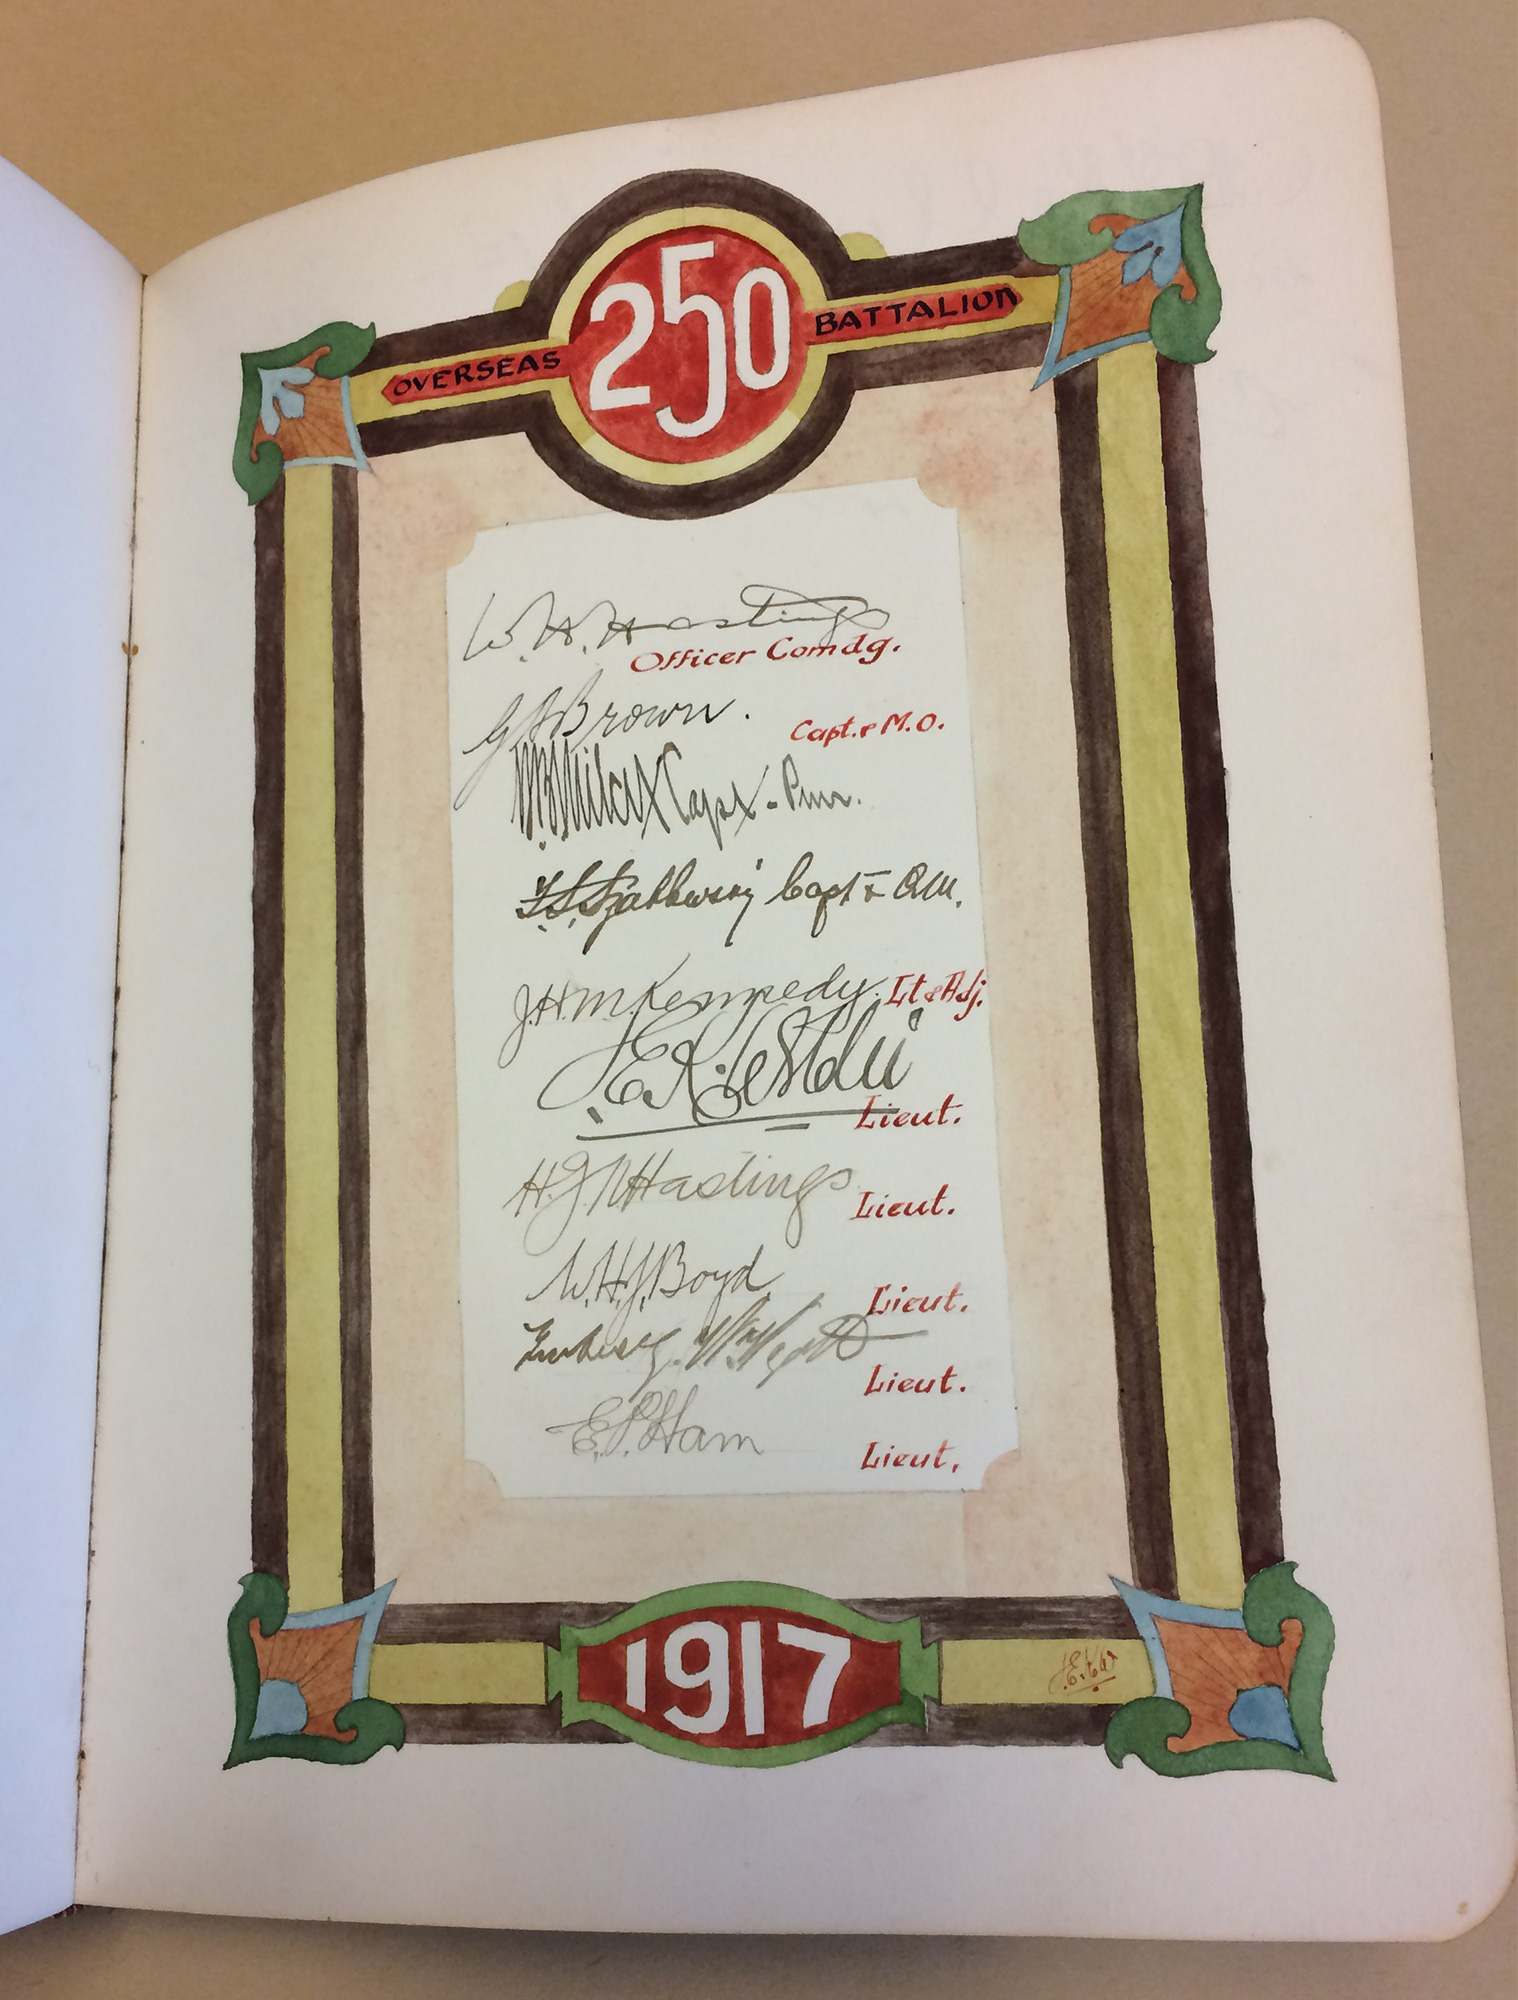 OVERSEAS 250 BATTALION
W. H. Hastings
Officer Comdg.
Brown.
Capt. & M.O.
Capt - Pmr.
Capt & QM.
J.H.M. Kennedy. Lt & Adj.
J.E.K.
Lieut.
H.J. Hastings
Lieut.
W.H.J. Boyd
Lieut.
Lieut.
E.P. Ham
Lieut.
1917